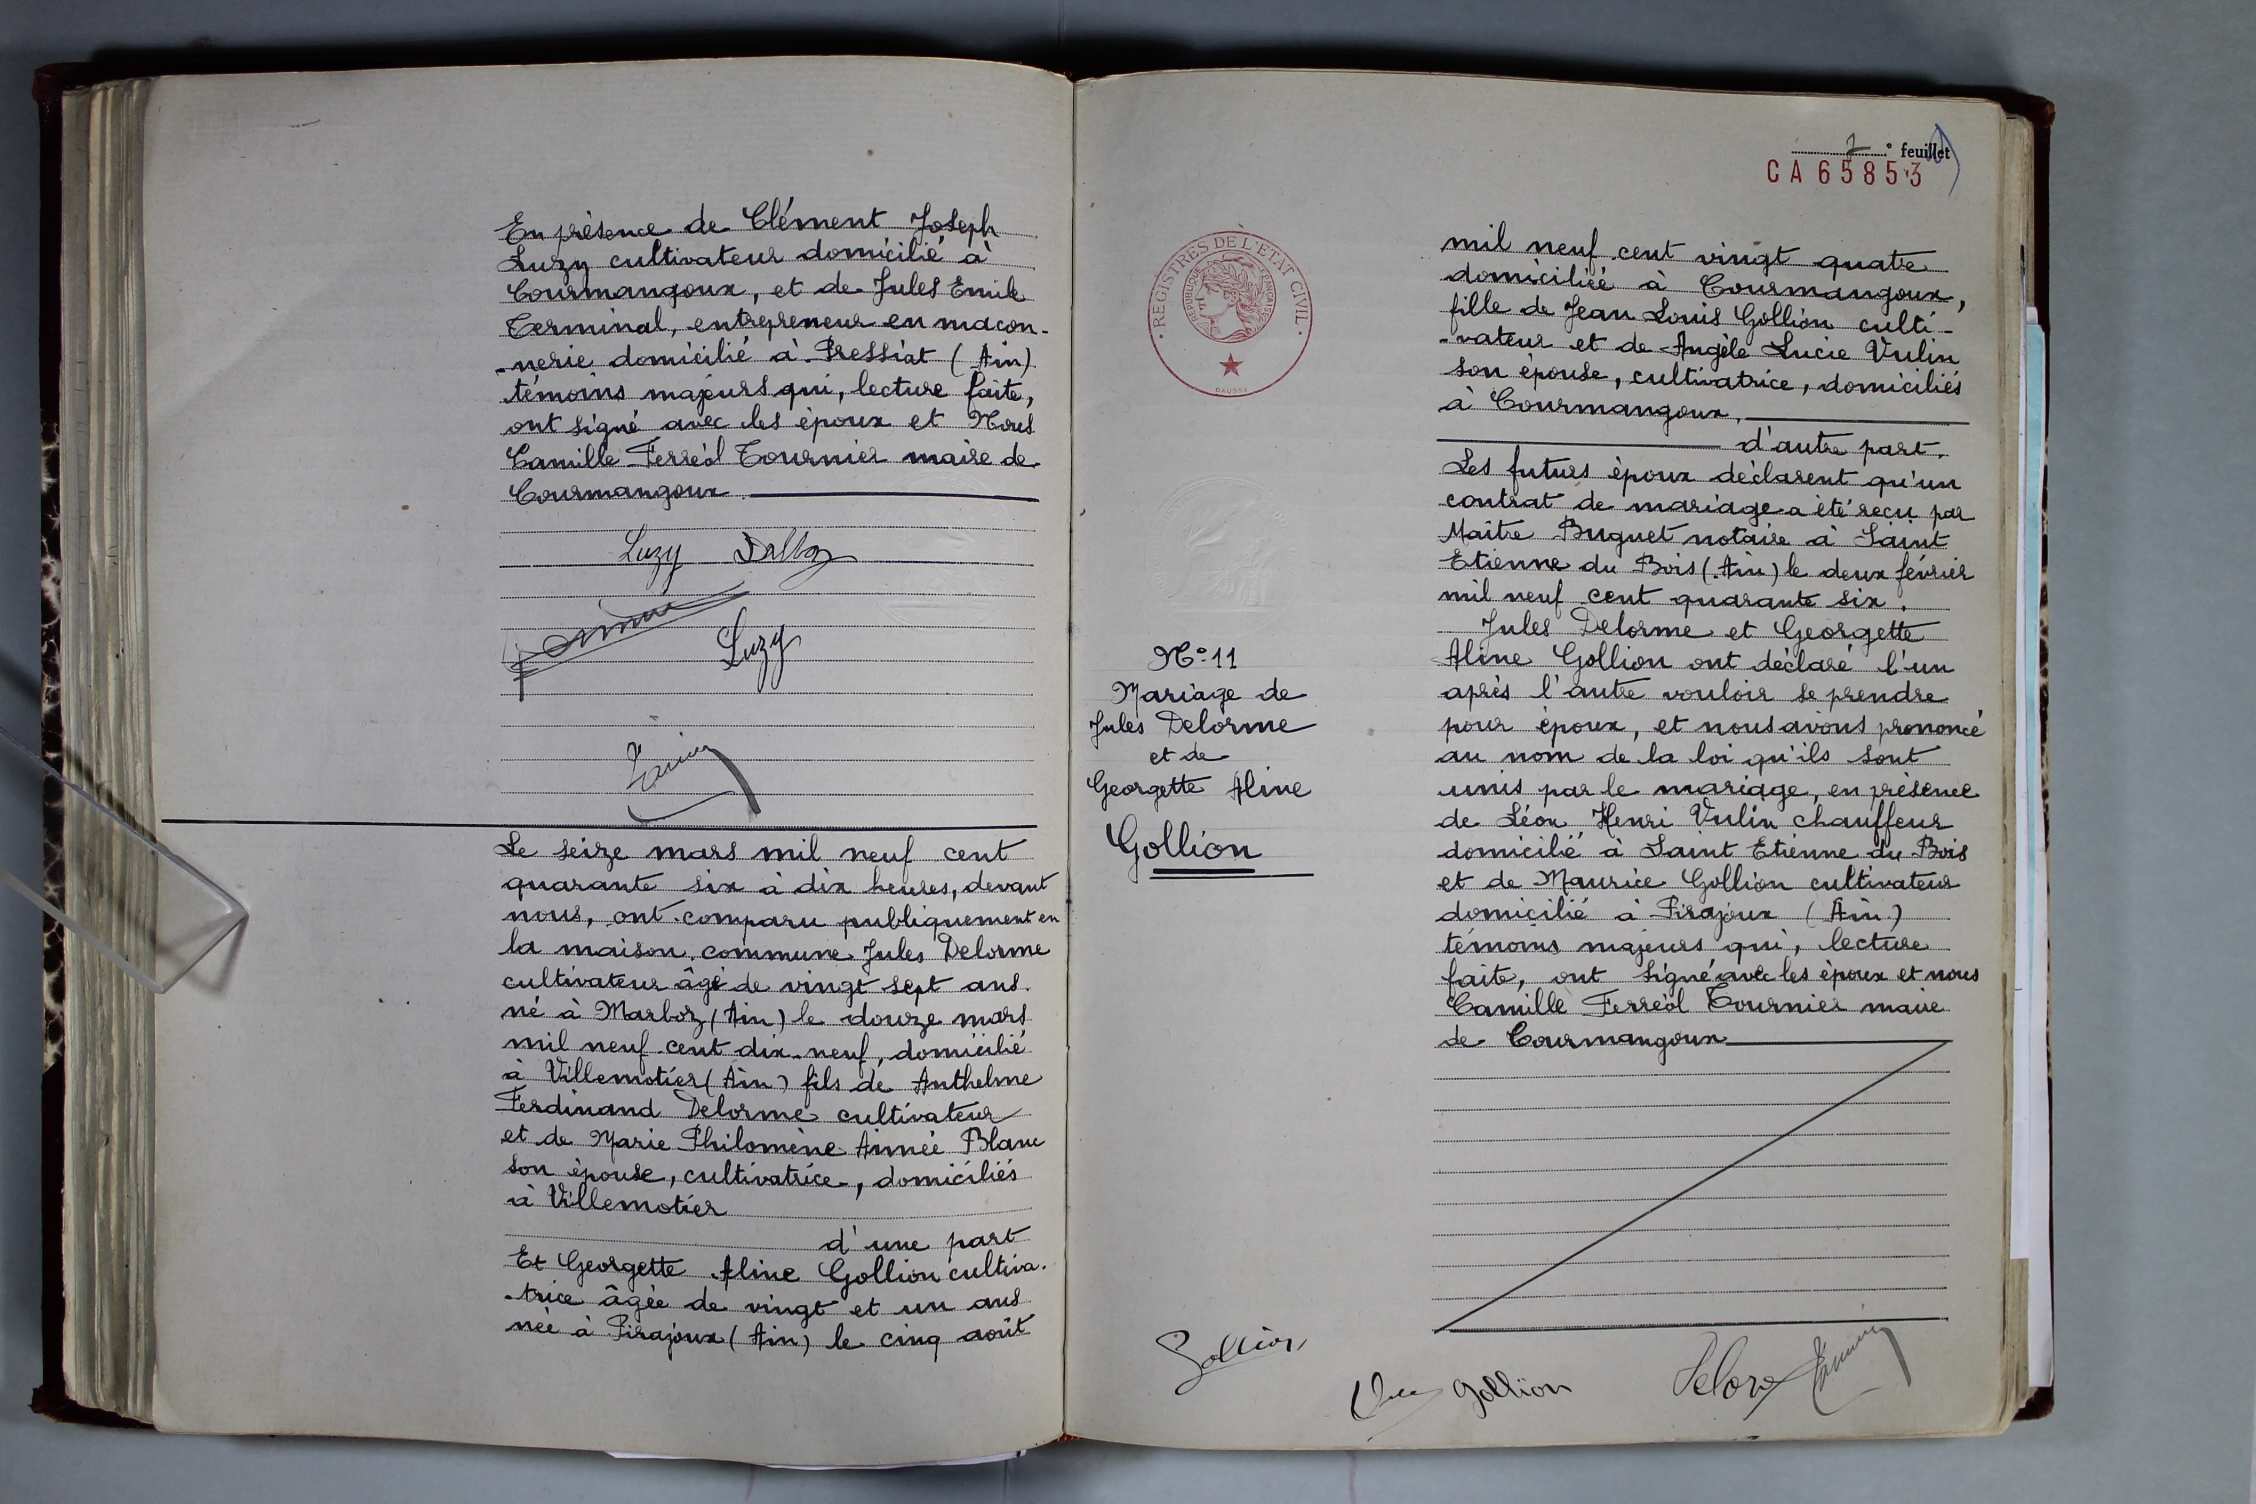 En présence de Clément Joseph
Luzy cultivateur domicilié à
Courmangoux, et de Jules Emile
Terminal, entrepreneur en macon-
-nerie domicilié à Pressiat (Ain)
témoins majeurs qui, lecture faite,
ont signé avec les époux et Nous
Camille Ferréol Tournier maire de
Courmangoux
Luzy
Luzy
Le seize mars mil neuf cent
quarante six à dix heures, devant
nous, ont comparu publiquement en
la maison commune Jules Delorme
cultivateur âgé de vingt sept ans
né à Marboz (Ain) le douze mars
mil neuf cent dix-neuf, domicilié
à Villemotier (Ain) fils de Anthelme
Ferdinand Delorme cultivateur
et de Marie Philomène Aimée Blanc
son épouse, cultivatrice, domiciliés
à Villemotier
d'une part
Et Georgette Aline Gollion cultiva-
-trice âgée de vingt et un ans
née à Pirajoux (Ain) le cinq août
2 ° feuillet
CA 65853
REGISTRES DE L'ÉTAT CIVIL
REPUBLIQUE FRANÇAISE
DAUSSY
N° 11
Mariage de
Jules Delorme
et de
Georgette Aline
Gollion
mil neuf cent vingt quatre
domiciliée à Courmangoux,
fille de Jean Louis Gollion culti-
-vateur et de Angèle Lucie Vulin
son épouse, cultivatrice, domiciliés
à Courmangoux,
d'autre part.
Les futurs époux déclarent qu'un
contrat de mariage a été reçu par
Maître Buguet notaire à Saint
Etienne du Bois (Ain) le deux février
mil neuf cent quarante six.
Jules Delorme et Georgette
Aline Gollion ont déclaré l'un
après l'autre vouloir se prendre
pour époux, et nous avons prononcé
au nom de la loi qu'ils sont
unis par le mariage, en présence
de Léon Henri Vulin chauffeur
domicilié à Saint Etienne du Bois
et de Maurice Gollion cultivateur
domicilié à Pirajoux (Ain)
témoins majeurs qui, lecture
faite, ont signé avec les époux et nous
Camille Ferréol Tournier maire
de Courmangoux
Gollion
Gollion